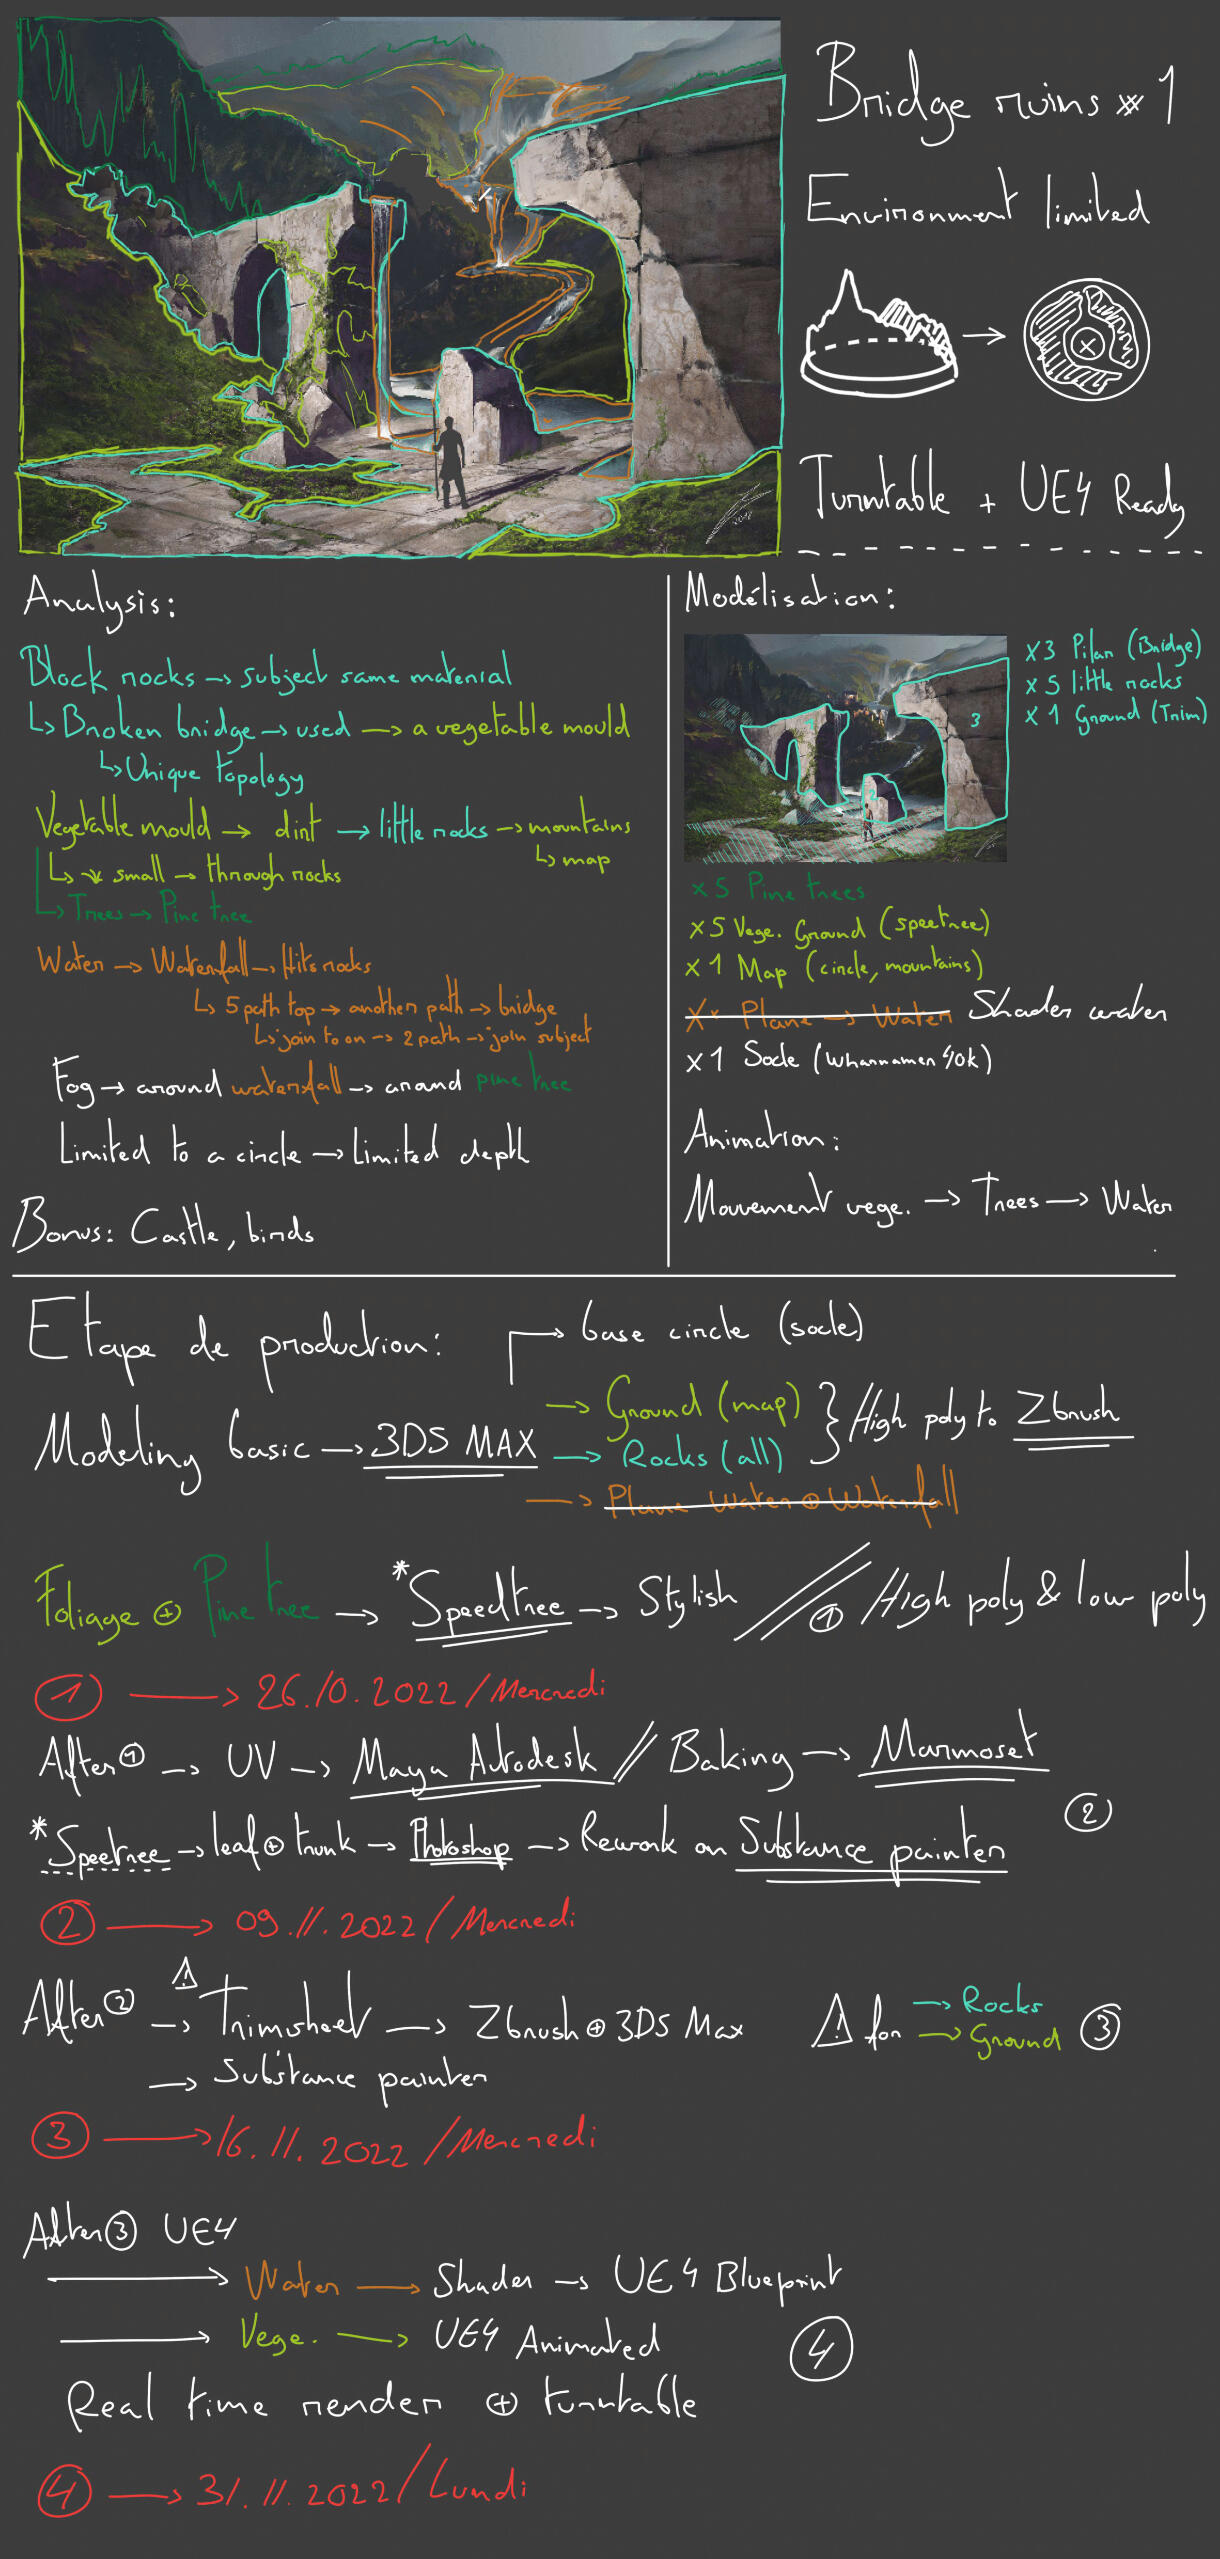 Bridge ruins #1
Environment limited
Turntable + UE4 Ready
Analysis:
Block rocks → subject same material
↳ Broken bridge → used → a vegetable mould
↳ Unique topology
Vegetable mould → dint → little rocks → mountains
↳ map
↳ small → through rocks
↳ Trees → Pine tree
Water → Waterfall → Hits rocks
↳ 5 path top → another path → bridge
↳ join to on → 2 path → join subject
Fog → around waterfall → around pine tree
Limited to a circle → Limited depth
Bonus: Castle, birds
Modélisation:
3
2
x3 Pilar (Bridge)
x5 little rocks
x1 Ground (Trim)
x5 Pine trees
x5 Vege. Ground (speetree)
x1 Map (circle, mountains)
Plane → Water Shader water
x1 Socle (Wharnamer 40k)
Animation:
Mouvement vege. → Trees → Water
Etape de production:
→ base circle (socle)
Modeling basic → 3DS MAX
→ Ground (map)
→ Rocks (all)
} High poly to Zbrush
→ Plane Water ⊕ Waterfall
Foliage ⊕ Pine tree → *Speedtree → Stylish // ① High poly & low poly
① → 26.10.2022 / Mercredi
After ① → UV → Maya Autodesk // Baking → Marmoset
②
*Speetree → leaf ⊕ trunk → Photoshop → Rework on Substance painter
② → 09.11.2022 / Mercredi
After ② → ⚠ Trimsheet → Zbrush ⊕ 3DS Max
→ Substance painter
⚠ for → Rocks
→ Ground
③
③ → 16.11.2022 / Mercredi
After ③ UE4
→ Water → Shader → UE4 Blueprint
→ Vege. → UE4 Animated
④
Real time render ⊕ turntable
④ → 31.11.2022 / Lundi